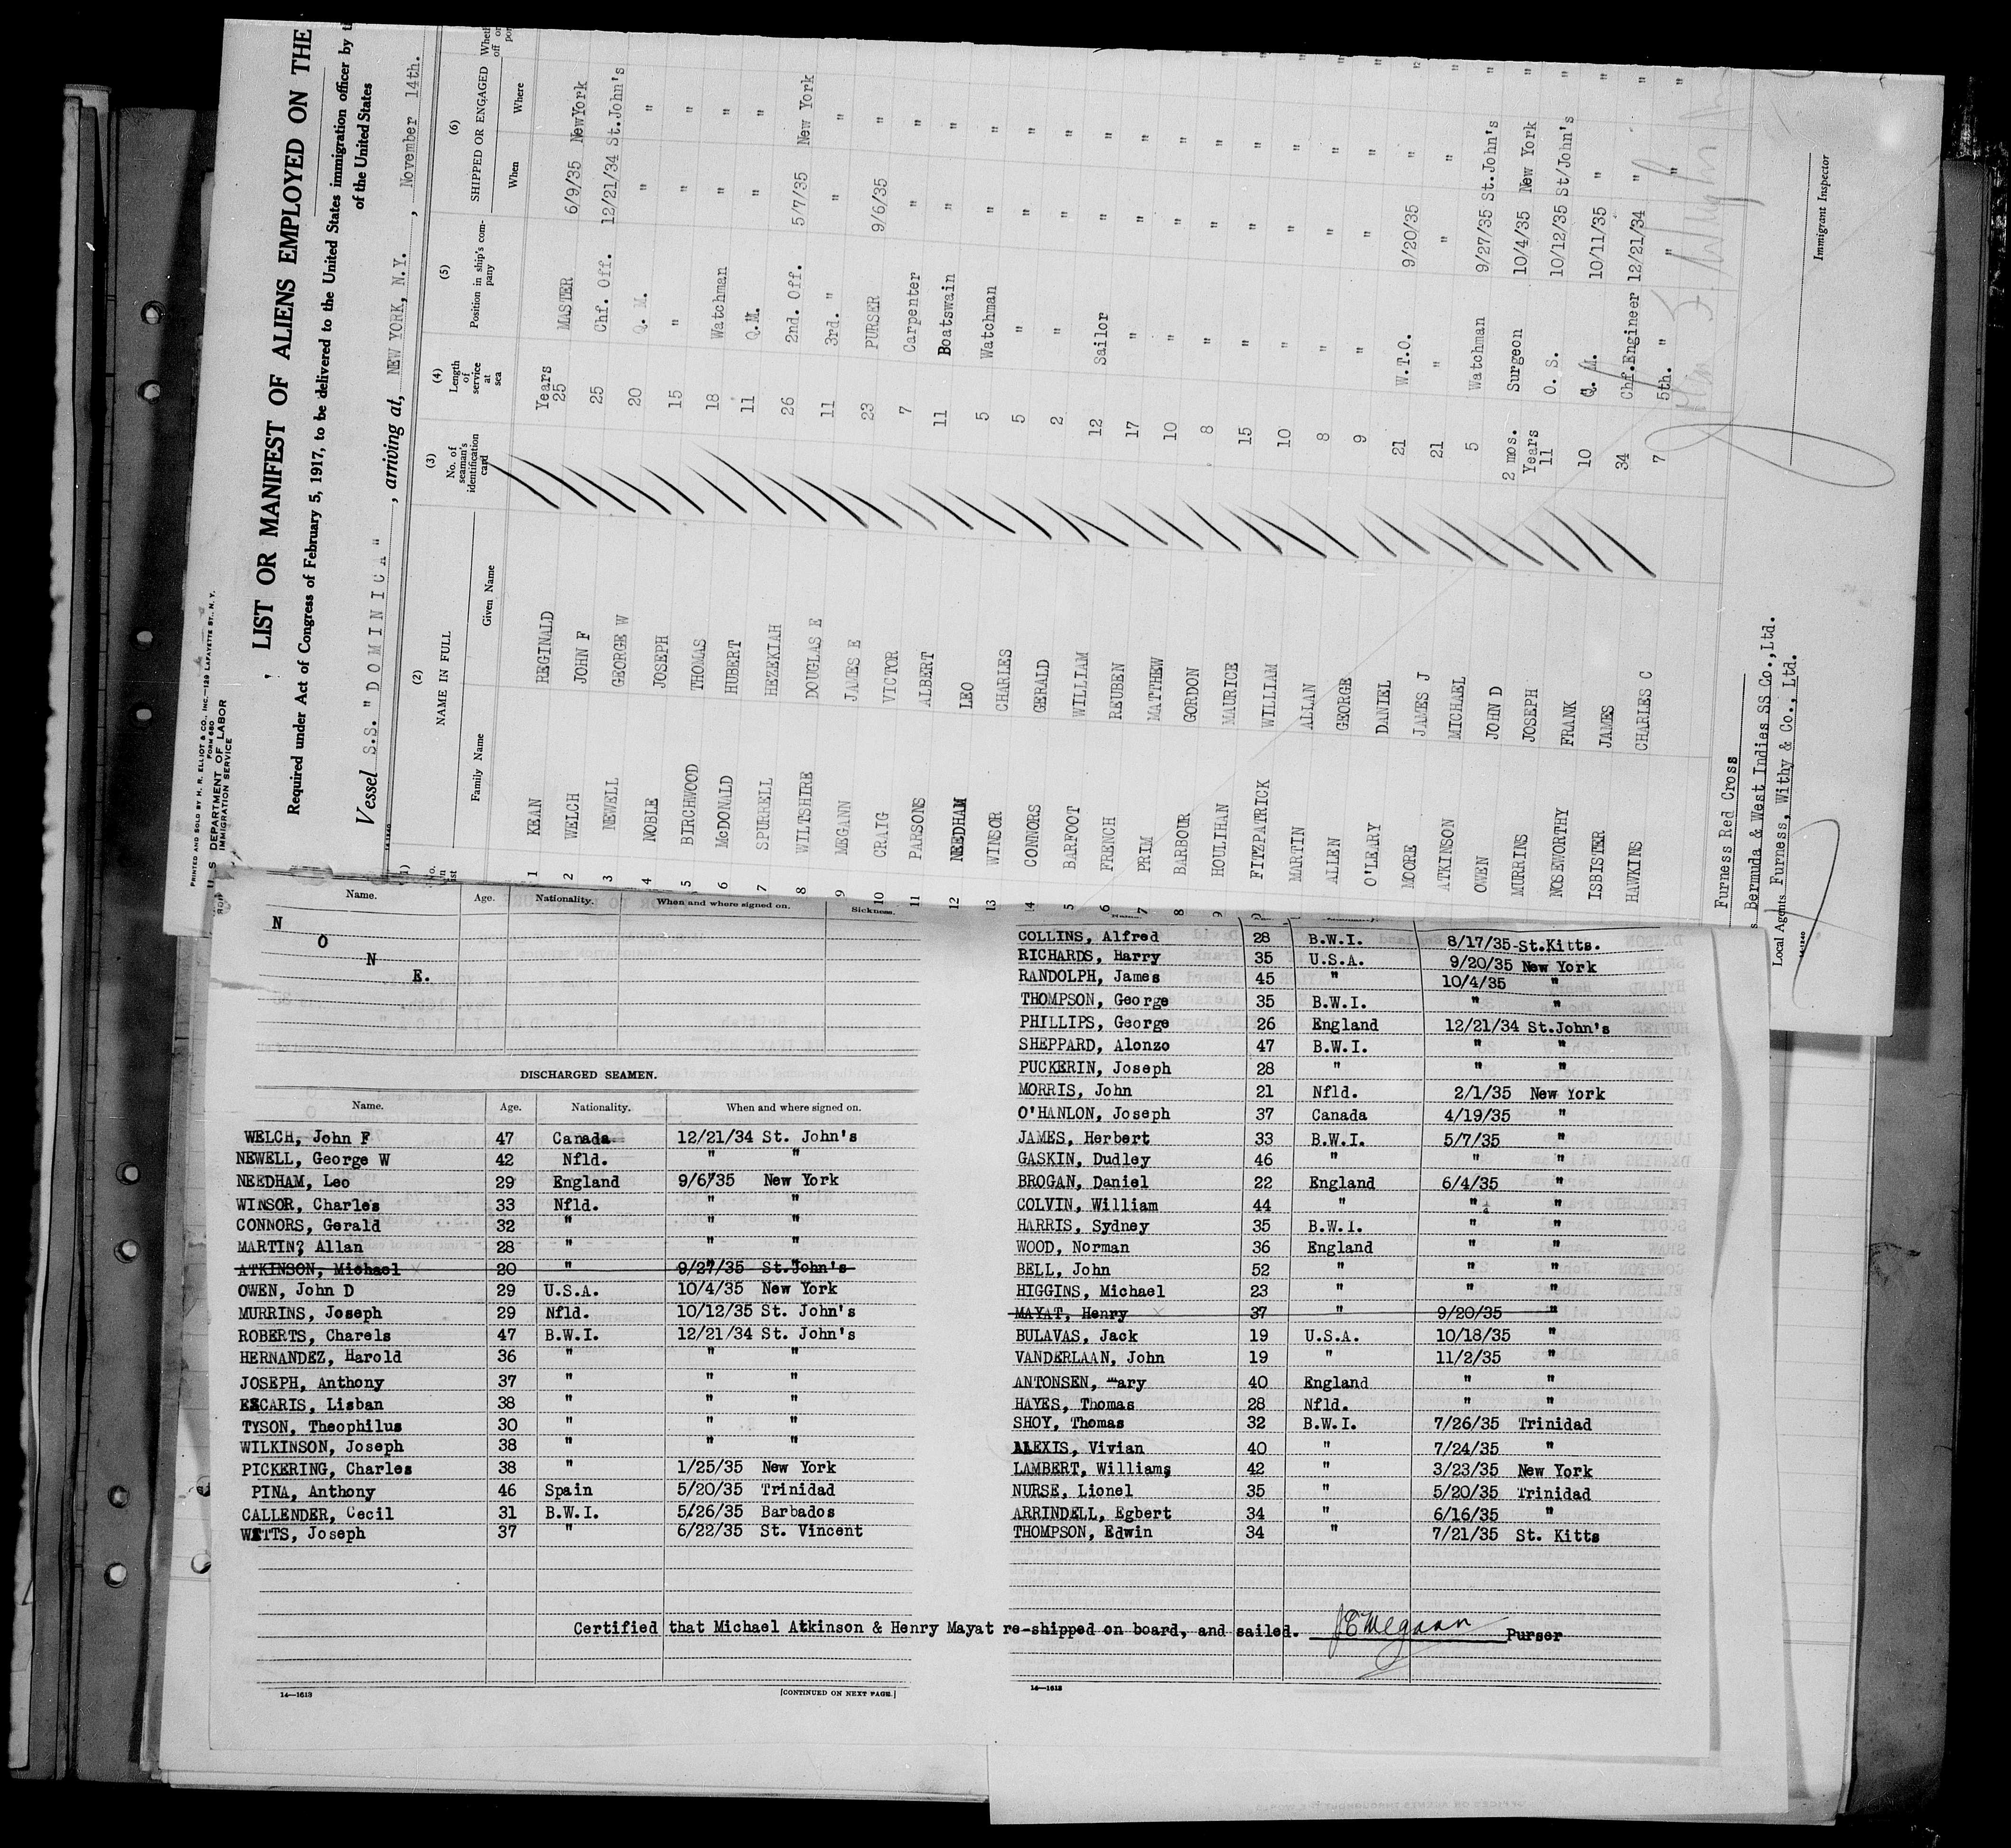 PRINTED AND SOLD BY H. R. ELLIOT & CO., INC.—129 LAFAYETTE ST., N. Y.
FORM 680
DEPARTMENT OF LABOR
IMMIGRATION SERVICE
LIST OR MANIFEST OF ALIENS EMPLOYED ON THE
Required under Act of Congress of February 5, 1917, to be delivered to the United States immigration officer by
of the United States
Vessel S.S. "DOMINICA", arriving at, NEW YORK, N.Y., November 14th.
(1) (2) (3) (4) (5) (6)
NAME IN FULL No. of seaman's identification card Length of service at sea Position in ship's company SHIPPED OR ENGAGED
Family Name Given Name When Where
Years
1 KEAN REGINALD 25 MASTER 6/9/35 NewYork
2 WELCH JOHN F 25 Chf. Off. 12/21/34 St.John's
3 NEWELL GEORGE W 20 Q. M. " "
4 NOBLE JOSEPH 15 " " "
5 BIRCHWOOD THOMAS 18 Watchman " "
6 McDONALD HUBERT 11 Q.M. " "
7 SPURRELL HEZEKIAH 26 2nd. Off. 5/7/35 New York
8 WILTSHIRE DOUGLAS E 11 3rd. " " "
9 MEGANN JAMES E 23 PURSER 9/6/35 "
10 CRAIG VICTOR 7 Carpenter " "
11 PARSONS ALBERT 11 Boatswain " "
12 NEEDHAM LEO 5 Watchman " "
13 WINSOR CHARLES 5 " " "
14 CONNORS GERALD 2 " " "
5 BARFOOT WILLIAM 12 Sailor " "
6 FRENCH REUBEN 17 " " "
7 PRIM MATTHEW 10 " " "
8 BARBOUR GORDON 8 " " "
9 HOULIHAN MAURICE 15 " " "
FITZPATRICK WILLIAM 10 " " "
MARTIN ALLAN 8 " " "
ALLEN GEORGE 9 " " "
O'LEARY DANIEL 21 W.T.O. 9/20/35 "
MOORE JAMES J 21 " " "
ATKINSON MICHAEL 5 Watchman 9/27/35 St.John's
OWEN JOHN D 2 mos. Surgeon 10/4/35 New York
MURRINS JOSEPH Years 11 O. S. 10/12/35 St/John's
NOSEWORTHY FRANK 10 Q. M. 10/11/35 "
ISBISTER JAMES 34 Chf.Engineer 12/21/34 "
HAWKINS CHARLES C 7 5th. " " "
Furness Red Cross
Bermuda & West Indies SS Co.,Ltd.
Local Agents Furness, Withy & Co., Ltd.
Immigrant Inspector
Name. Age. Nationality. When and where signed on. Sickness.
N
O
N
E.
DISCHARGED SEAMEN.
Name. Age. Nationality. When and where signed on.
WELCH, John F 47 Canada 12/21/34 St. John's
NEWELL, George W 42 Nfld. " "
NEEDHAM, Leo 29 England 9/6/35 New York
WINSOR, Charles 33 Nfld. " "
CONNORS, Gerald 32 " " "
MARTIN? Allan 28 " " "
ATKINSON, Michael 20 " 9/27/35 St.John's
OWEN, John D 29 U.S.A. 10/4/35 New York
MURRINS, Joseph 29 Nfld. 10/12/35 St. John's
ROBERTS, Charels 47 B.W.I. 12/21/34 St. John's
HERNANDEZ, Harold 36 " " "
JOSEPH, Anthony 37 " " "
ESCARIS, Lisban 38 " " "
TYSON, Theophilus 30 " " "
WILKINSON, Joseph 38 " " "
PICKERING, Charles 38 " 1/25/35 New York
PINA, Anthony 46 Spain 5/20/35 Trinidad
CALLENDER, Cecil 31 B.W.I. 5/26/35 Barbados
WATTS, Joseph 37 " 6/22/35 St. Vincent
COLLINS, Alfred 28 B.W.I. 8/17/35-St.Kitts.
RICHARDS, Harry 35 U.S.A. 9/20/35 New York
RANDOLPH, James 45 " 10/4/35 "
THOMPSON, George 35 B.W.I. " "
PHILLIPS, George 26 England 12/21/34 St.John's
SHEPPARD, Alonzo 47 B.W.I. " "
PUCKERIN, Joseph 28 " " "
MORRIS, John 21 Nfld. 2/1/35 New York
O'HANLON, Joseph 37 Canada 4/19/35 "
JAMES, Herbert 33 B.W.I. 5/7/35 "
GASKIN, Dudley 46 " " "
BROGAN, Daniel 22 England 6/4/35 "
COLVIN, William 44 " " "
HARRIS, Sydney 35 B.W.I. " "
WOOD, Norman 36 England " "
BELL, John 52 " " "
HIGGINS, Michael 23 " " "
MAYAT, Henry 37 " 9/20/35 "
BULAVAS, Jack 19 U.S.A. 10/18/35 "
VANDERLAAN, John 19 " 11/2/35 "
ANTONSEN, Mary 40 England " "
HAYES, Thomas 28 Nfld. " "
SHOY, Thomas 32 B.W.I. 7/26/35 Trinidad
ALEXIS, Vivian 40 " 7/24/35 "
LAMBERT, Williams 42 " 3/23/35 New York
NURSE, Lionel 35 " 5/20/35 Trinidad
ARRINDELL, Egbert 34 " 6/16/35 "
THOMPSON, Edwin 34 " 7/21/35 St. Kitts
Certified that Michael Atkinson & Henry Mayat re-shipped on board, and sailed. JEMegann Purser
14—1613 [CONTINUED ON NEXT PAGE.] 14—1613